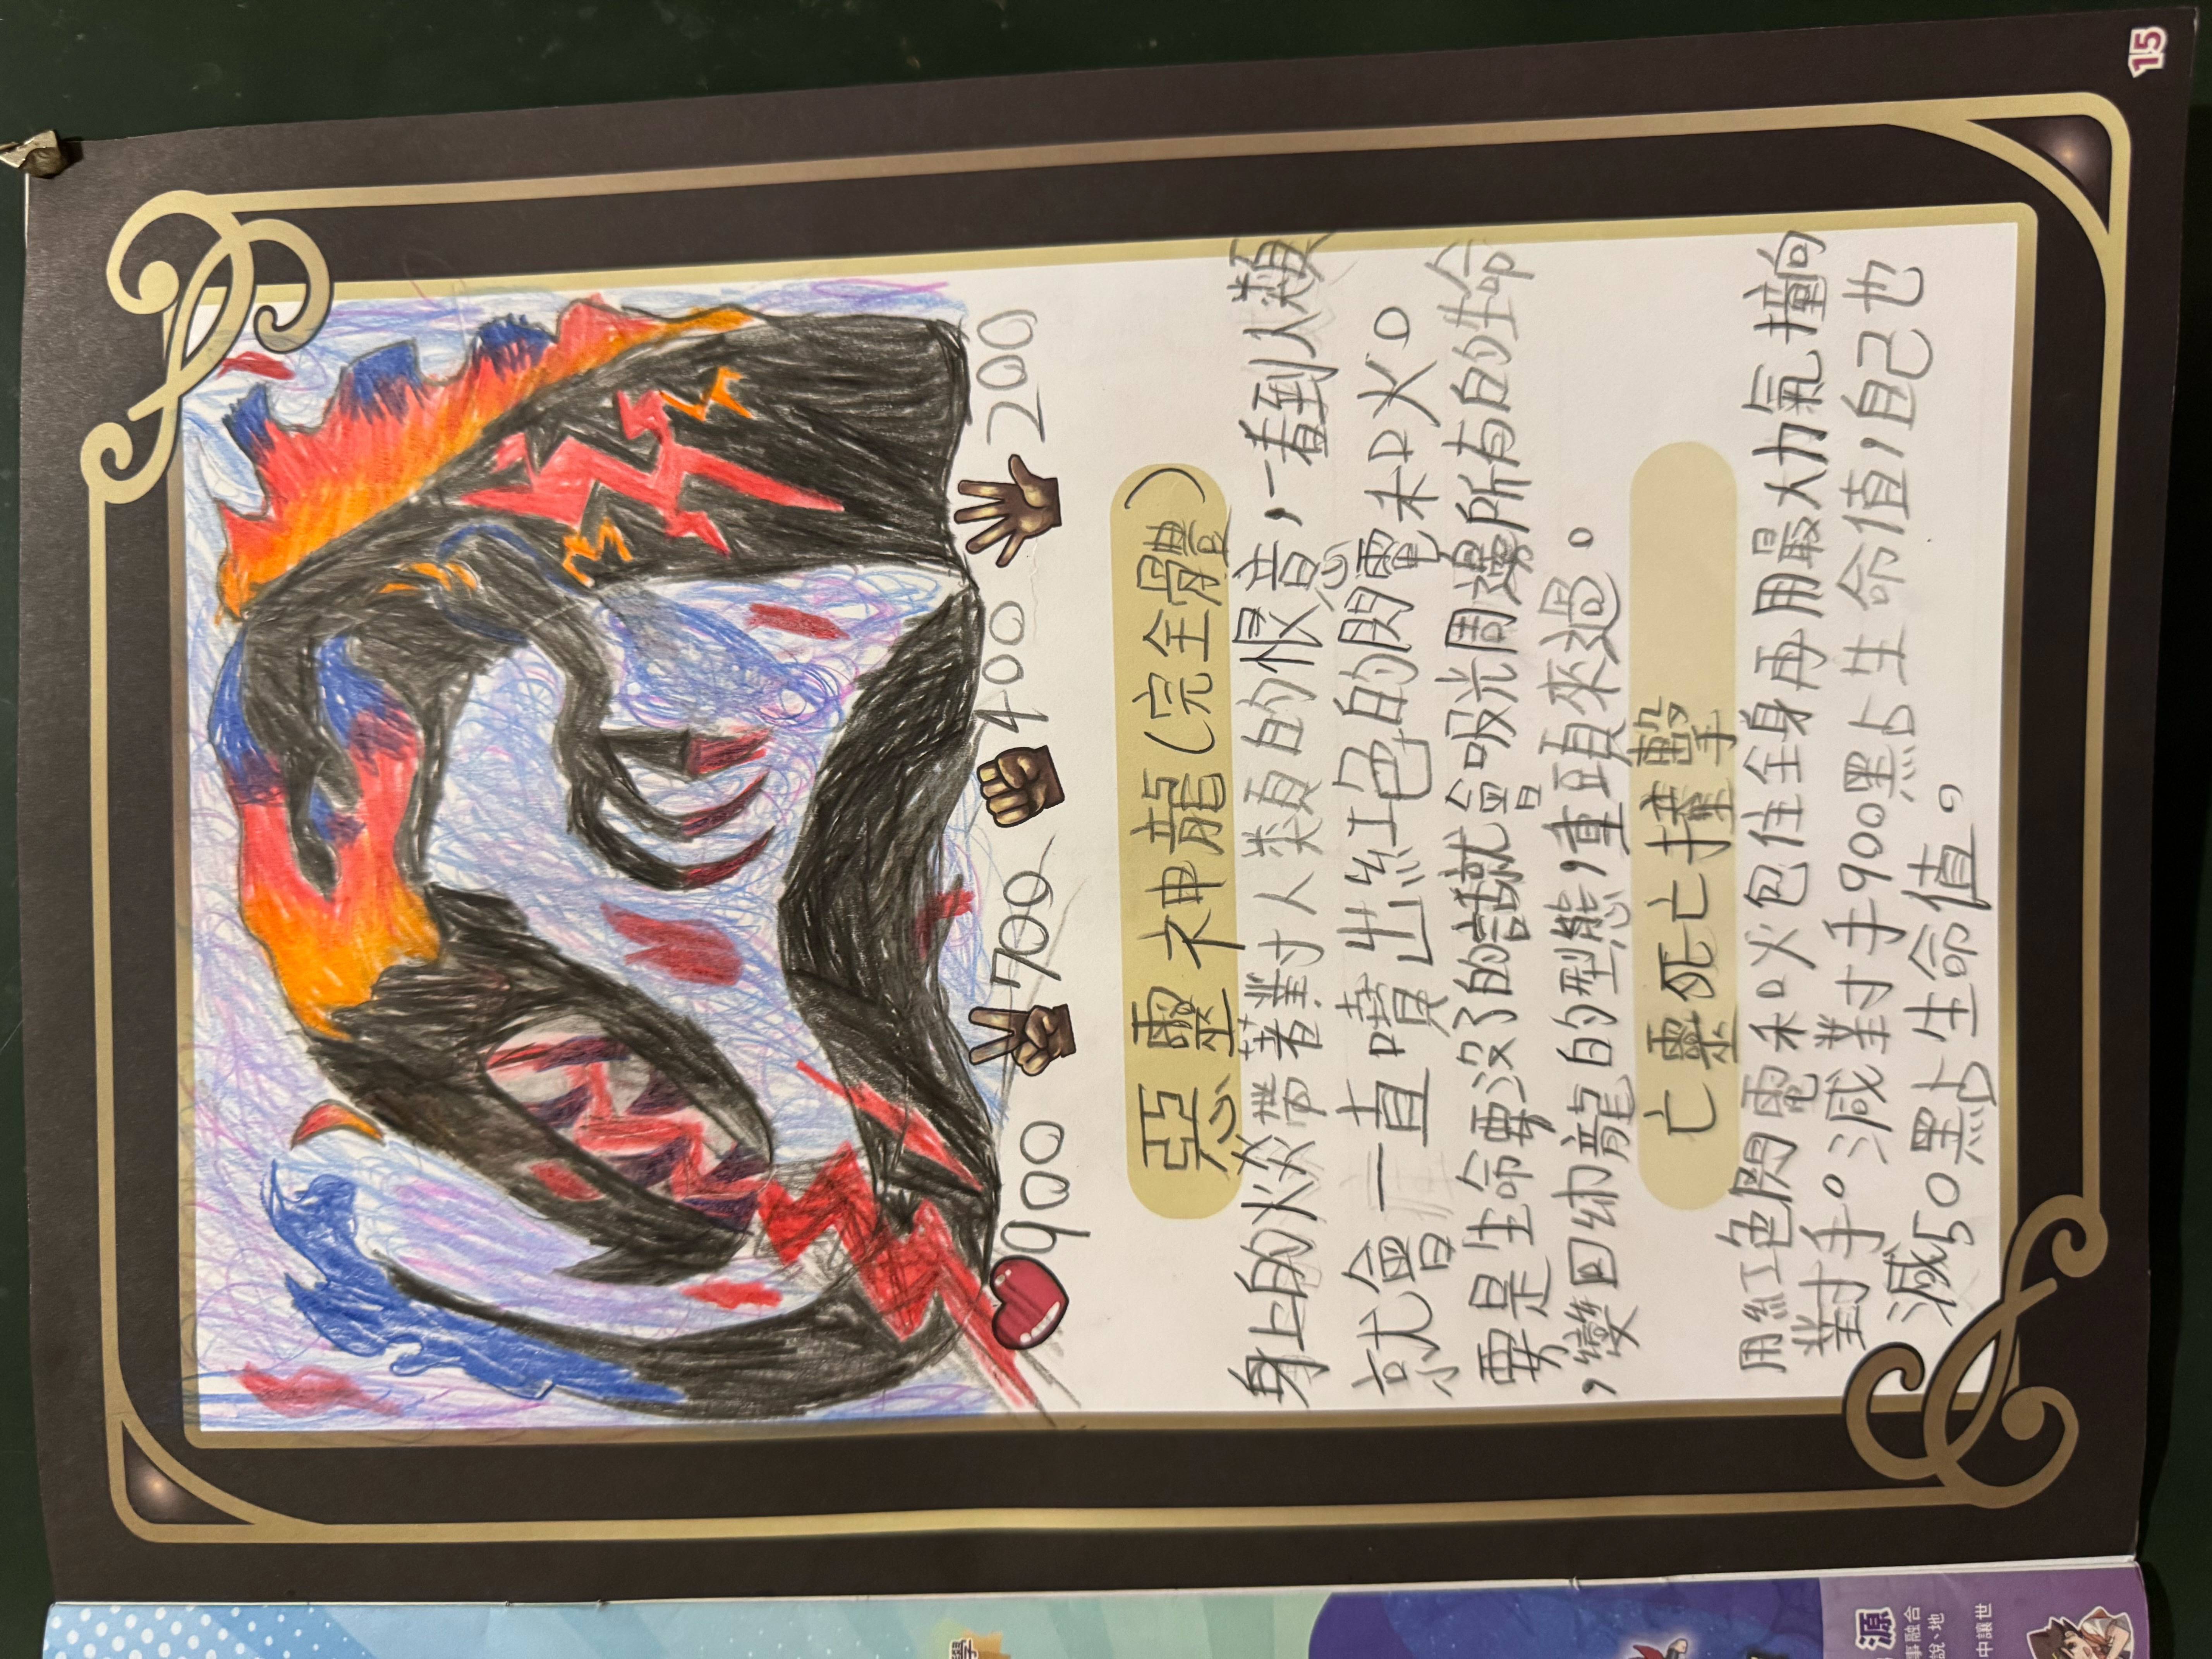 900 700 400 200
惡靈神龍(完全體)
身上的火焱帶著對人類的恨意，一看到人類
就會一直噴出紅色的閃電和火。
要是生命要沒了的話就會吸光周邊所有的生命
，變回幼龍的型態，重頭來過。
亡靈死亡撞擊
用紅色閃電和火包住全身再用最大力氣撞向
對手。減對手900點生命值，自己也
減50點生命值。
15
源
事融合
說、地
中讓世
學